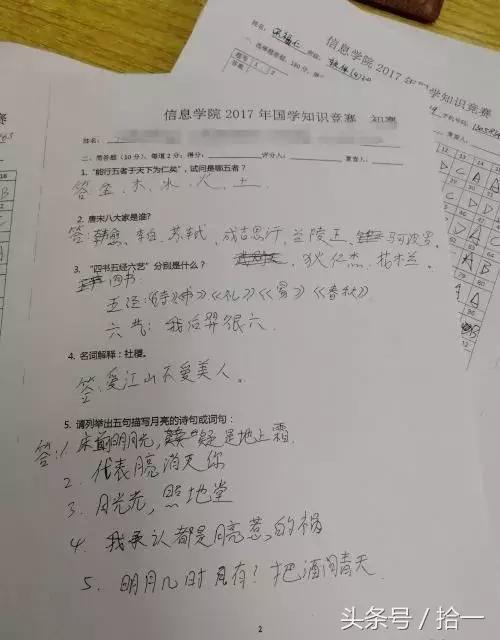 信息学院 2017
学知识竞赛
信息学院 2017 年国学知识竞赛 初赛
姓名:
二、简答题(10分)，每道2分；得分: 评分人: 复查人:
1. “能行五者于天下为仁矣”，试问是哪五者？
答：金、木、水、火、土
2. 唐宋八大家是谁?
答: 韩愈、李白、苏轼、成吉思汗、兰陵王、马可波罗、
狄仁杰、花木兰。
3. “四书五经六艺”分别是什么？
四书:
五经:《诗》《书》《礼》《易》《春秋》
六艺: 我后羿很六
4. 名词解释：社稷。
答、爱江山不爱美人。
5. 请列举出五句描写月亮的诗句或词句：
答:1. 床前明月光，疑是地上霜.
2. 代表月亮消灭你
3. 月光光，照地堂
4. 我承认都是月亮惹的祸
5. 明月几时有? 把酒问青天.
2
头条号 / 拾一